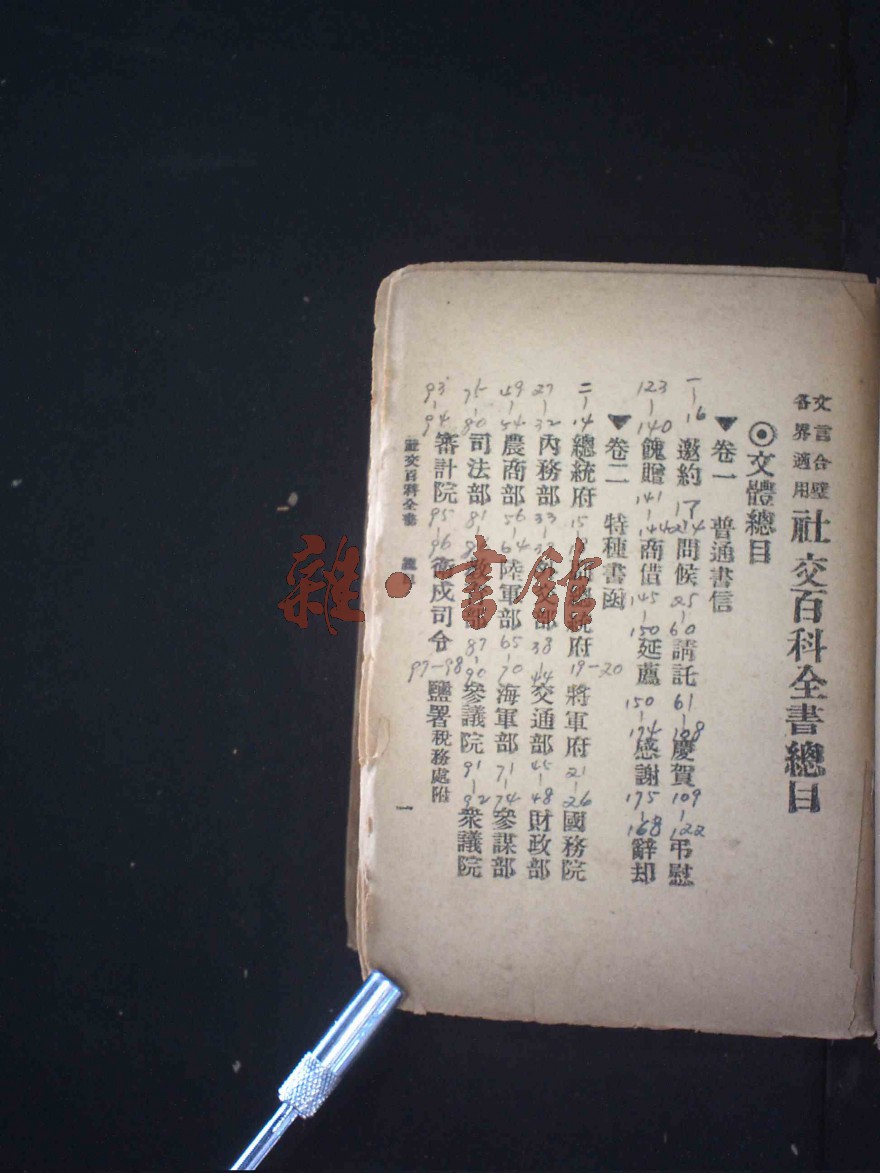 文言合璧
各界適用
社交百科全書總目
文體總目
▼卷一 普通書信
一-16 邀約 17-24 問候 25-60 請託 61-108 慶賀 109-122 弔慰
123-140 餽贈 141-144 商借 145-150 延薦 150-174 感謝 175-168 辭却
▼卷二 特種書函
二-14 總統府 15 統府 19-20 將軍府 21-26 國務院
27-32 內務部 33 部 38-44 交通部 45-48 財政部
49-54 農商部 56-64 陸軍部 65-70 海軍部 71-74 參謀部
75-80 司法部 81 部 87-90 參議院 91-92 衆議院
93-94 審計院 95-96 衛戍司令 97-98 鹽署稅務處附
社交百科全書 總目 一
雜·書館